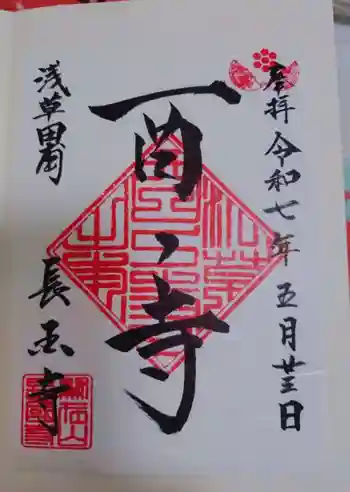 奉拝 令和七年五月廿三日
酉之寺
浅草田圃
長国寺